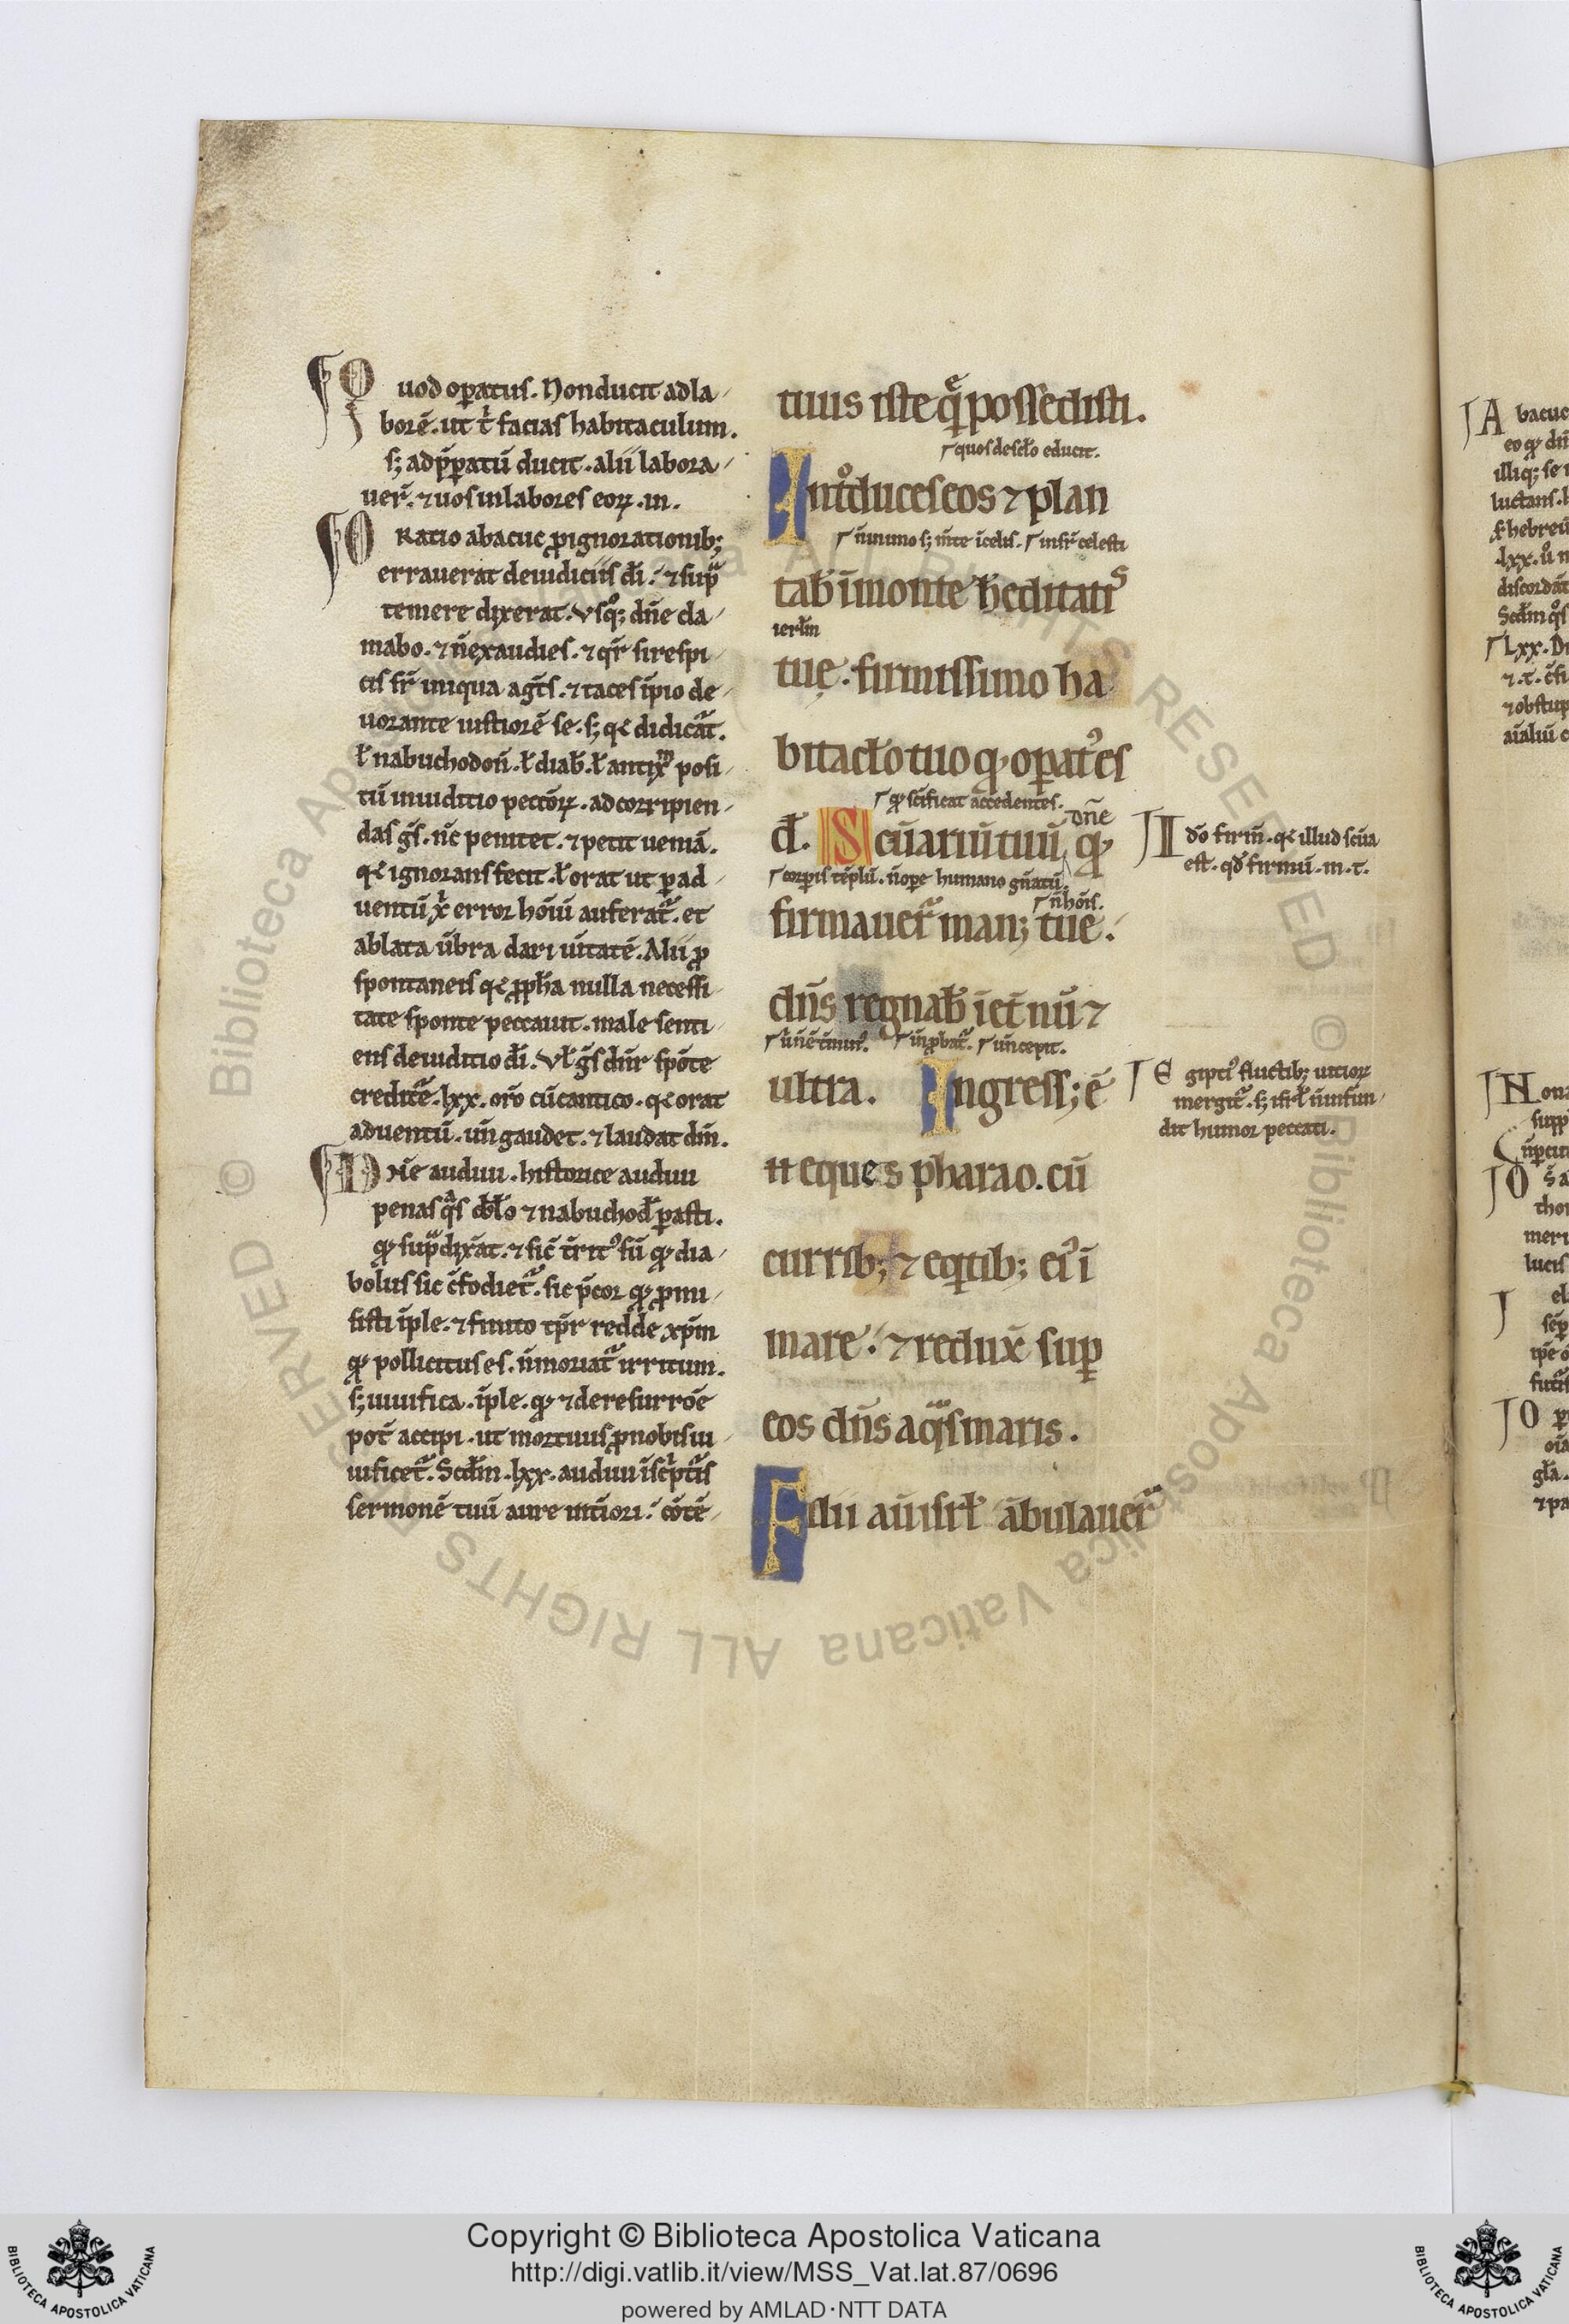 Quod opatus. Non ducit ad la
borē. ut t̾ facias habitaculum.
s; ad p̄paꞇū ducit. alii labora
uer̄. ⁊ uos in labores eoꝝ. in.
Oratio abacuc ꝓ ignorationib;
errauerat de iudiciis di̅. ⁊ sup̄
temere dixerat. Vsq; dn̄e cla
mabo. ⁊ n̄ exaudies. ⁊ qr̄ si respi
cis sr̄ iniqua agt̄s. ⁊ taces īpio de
uorante iustiorē se. s; qꝛ didicat̄.
ł nabuchodon̄. ł diab̄. ł antix̄ posi
tū in iuditio peccōꝝ. ad corripien
das gs̄. nc̄ penitet. ⁊ petit ueniā.
qꝛ ignorans fecit. ł orat ut ꝑ ad
uentū x̄ error hōiū auferat̄. et
ablata ūbra dari ūitatē. Alii ꝓ
spontaneis qꝛ ꝓpħa nulla necessi
tate sponte peccauit. male senti
ens de iuditio di̅. Vł gs̄ dn̄r spōte
creditē. lxx. or̄o cū cantico. qꝛ orat
aduentū. un̄ gaudet. ⁊ laudat dm̄.
Dn̄e audiui. historice audiui
penas qs̄ dbło ⁊ nabuchod̄ ꝑasti.
qꝫ sup̄ dix̄at. ⁊ sic̄ t̄rit᾽ sū qꝫ dia
bolus sic c̄fodiet̄. sic p̄cor qꝫ ꝓmi
sisti īple. ⁊ finito tp̄r redde xp̄m
qꝫ pollicitus es. n̄ moriat̄ irritum.
s; uiuifica. īple. qꝫ ⁊ de resurrōe
pot̄ accipi. ut mortuus ꝓ nobis ui
uificet̄. Scdm̄. lxx. audiui īsc̄ptis
sermonē tuū aure int̄iori. cōtē
tuus iste quē possedisti.
quos de scło educit.
Intᵒduces eos ⁊ plan
n̄ in imo s; m̄te ī celis. in fr̄ celesti
tab̄ ī monte h̄editatis
ierłm
tuę. firmissimo ha
bitacło tuo qꝫ opat᾽ es
qꝫ sc̄ificat accedentes.
dn̄e
d̄. Scūariū tuū qꝫ
corꝑis tēplū. n̄ ope humano gn̄atū.
n̄ hōis.
firmauer̄ man; tue.
dn̄s regnab̄ ī et̄nū ⁊
ultra. Ingress; ē
n̄ eques pharao. cū
currib; ⁊ eqtib; ei᾽ ī
mare. ⁊ redux̄ suꝑ
eos dn̄s aqˢ maris.
Filii aū isrł ābulauer̄
Ido firm̄. qꝛ illud scūa
est. qd̄ firmū. m. t.
Egipti᾽ fluctib; uitioꝝ
mergit̄. s; isrł n̄ infun
dit humor peccati.
© Biblioteca Apostolica Vaticana ALL RIGHTS RESERVED
Copyright © Biblioteca Apostolica Vaticana
http://digi.vatlib.it/view/MSS_Vat.lat.87/0696
powered by AMLAD·NTT DATA
BIBLIOTECA APOSTOLICA VATICANA
BIBLIOTECA APOSTOLICA VATICANA